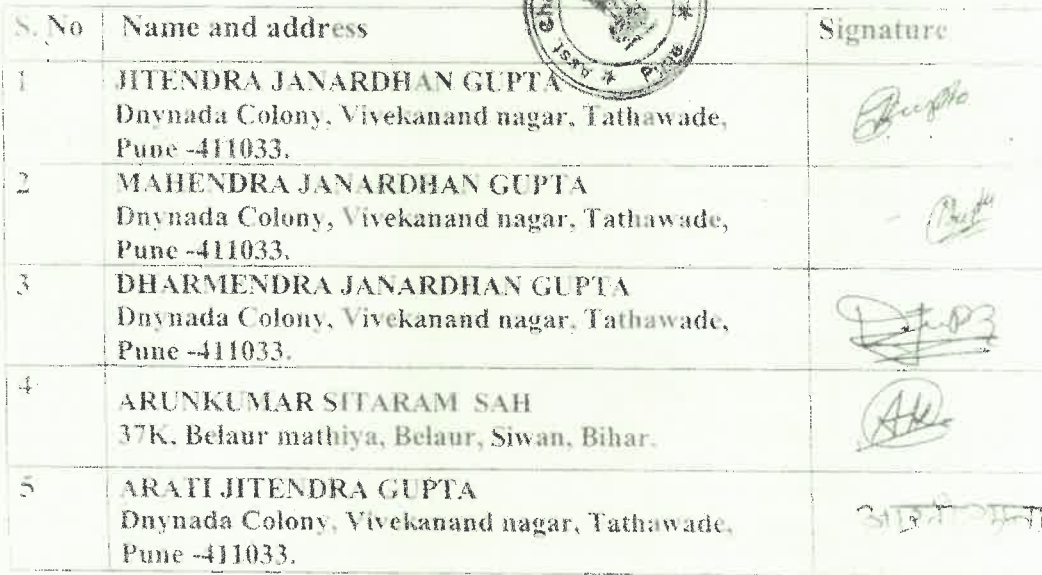 S. No Name and address Signature
1 JITENDRA JANARDHAN GUPTA
Dnynada Colony, Vivekanand nagar, Tathawade,
Pune -411033.
2 MAHENDRA JANARDHAN GUPTA
Dnynada Colony, Vivekanand nagar, Tathawade,
Pune -411033.
3 DHARMENDRA JANARDHAN GUPTA
Dnynada Colony, Vivekanand nagar, Tathawade,
Pune -411033.
4 ARUNKUMAR SITARAM SAH
37K, Belaur mathiya, Belaur, Siwan, Bihar.
5 ARATI JITENDRA GUPTA
Dnynada Colony, Vivekanand nagar, Tathawade,
Pune -411033.
Asst. Pune